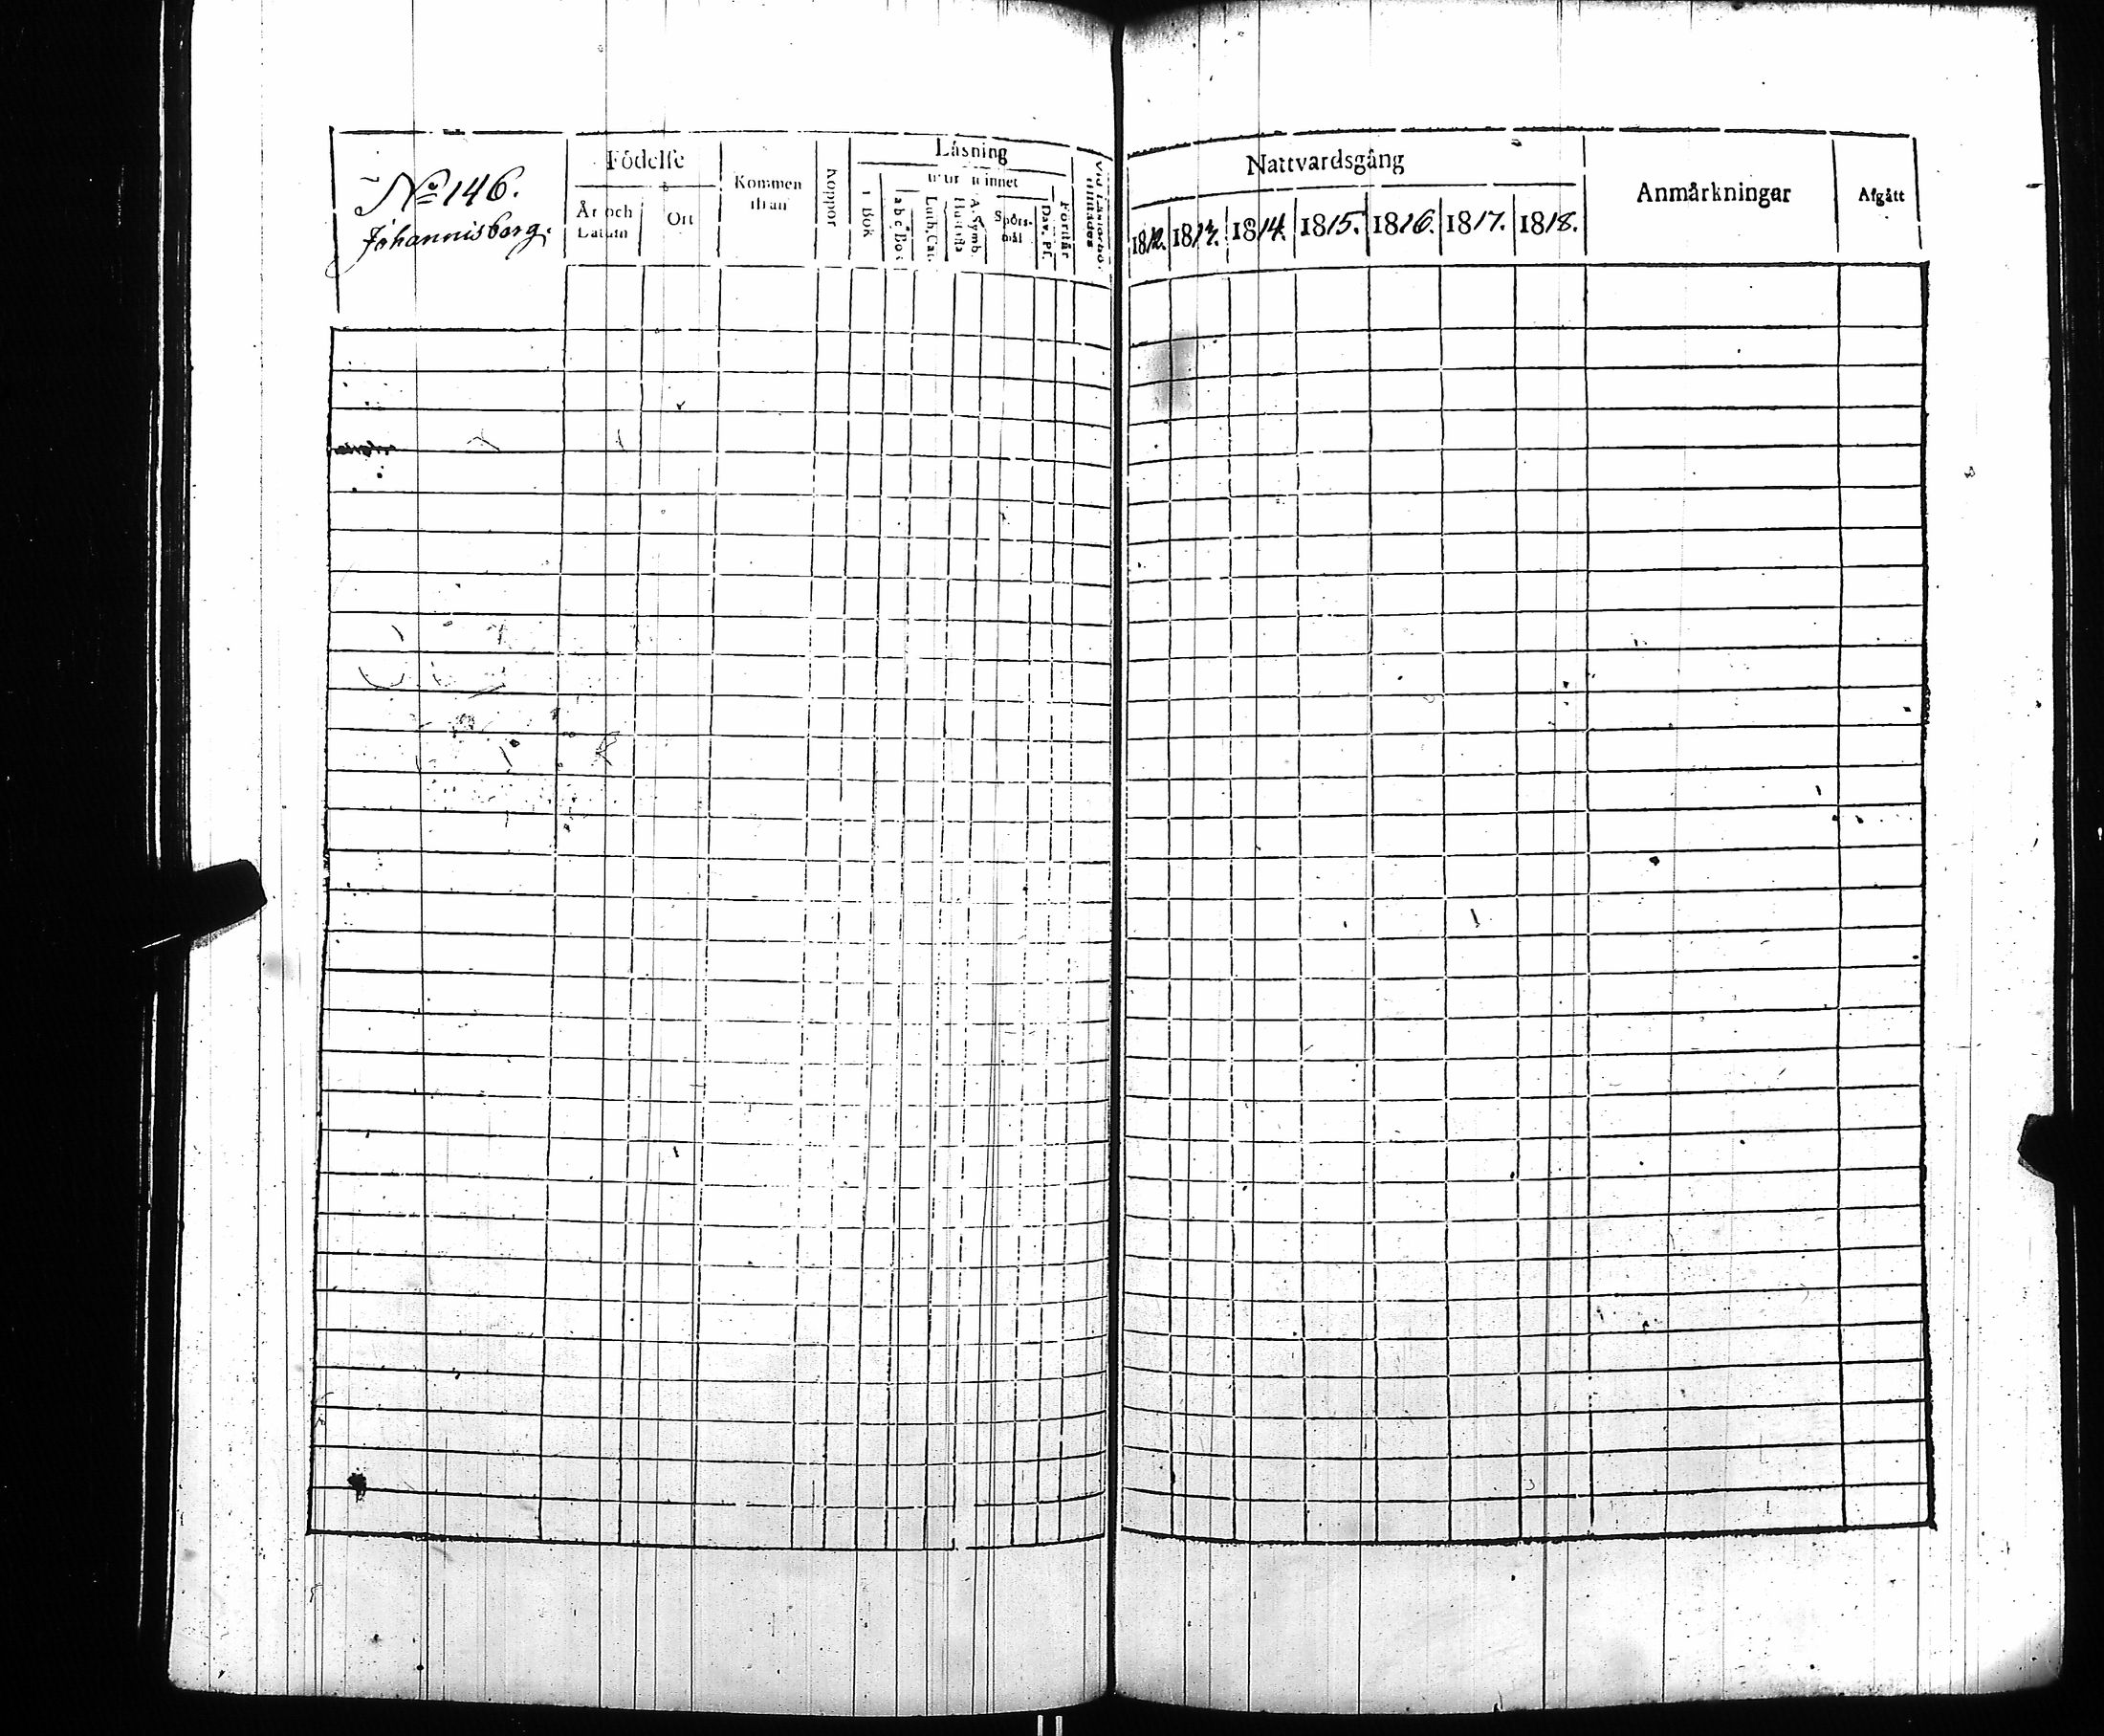 No 146.
Johannisberg.
Födelse
År och Datum
Ort
Kommen ifrån
Koppor
Läsning
i Bok
utur minnet
abc Bok
Luth. Cat.
A. Symb.
Hustafla
Spörsmål
Dav. Ps.
Förstår
Nattvardsgång
1812. 1813. 1814. 1815. 1816. 1817. 1818.
Anmärkningar
Afgått